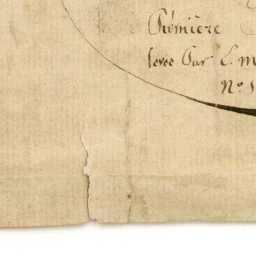 Première
levée Par C. M
N° 1